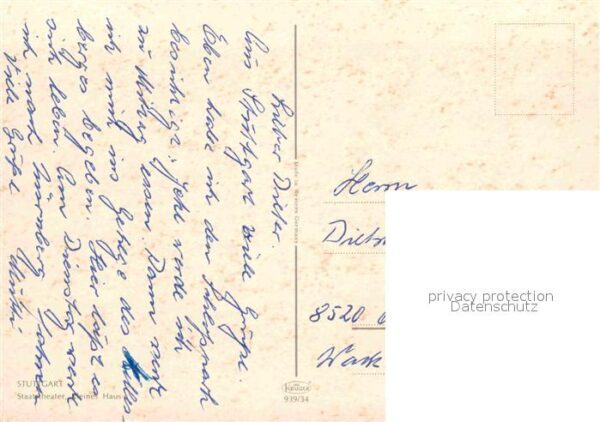 Lieber Dieter.
Aus Stuttgart viele Grüße.
Eben habe ich den
besichtigt; jetzt werde ich
zu Mittag essen. Dann werde
ich mich ins Gehege des Killes-
berges begeben. Hier läßt es
sich leben. Am Dienstag werde
ich nach Nürnberg
Viele Grüße
Herrn
8520
STUTTGART
Staatstheater, Kleines Haus
Made in Western Germany
KRÜGER
939/34
privacy protection
Datenschutz